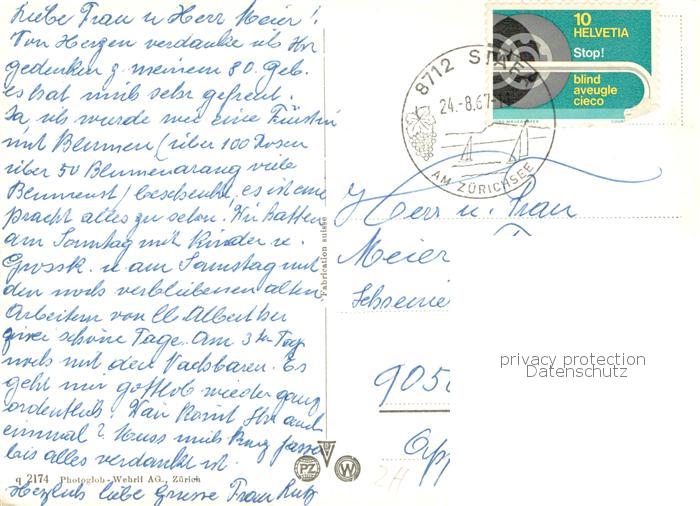 Liebe Frau u Herr Meier!
Von Herzen verdanke ich Ihr
gedenken z. meinem 80. Geb.
es hat mich sehr gefreut.
Ja ich wurde wie eine Fürstin
mit Blumen (über 100 Rosen
über 50 Blumenarang viele
Blumenst) beschenkt, es ist eine
pracht alles zu sehen. Wir hatten
am Sonntag mit Kinder u.
Grossk. u am Samstag mit
den noch verbliebenen alten
Arbeitern von
zwei schöne Tage. Am 3ten Tag
noch mit den Nachbaren. Es
geht mir gottlob wieder ganz
ordentlich. Wann komt Ihr auch
einmal? Muss mich kurz fassen
bis alles verdankt ist.
Herzlich liebe Grüsse Frau Rutz
q 2174 Photoglob-Wehrli AG., Zürich
Fabrication suisse
PZ
W
8712 STÄFA
24.-8.67
AM ZÜRICHSEE
10
HELVETIA
Stop!
blind
aveugle
cieco
Herr u. Frau
Meier
Schreine
905
App
privacy protection
Datenschutz